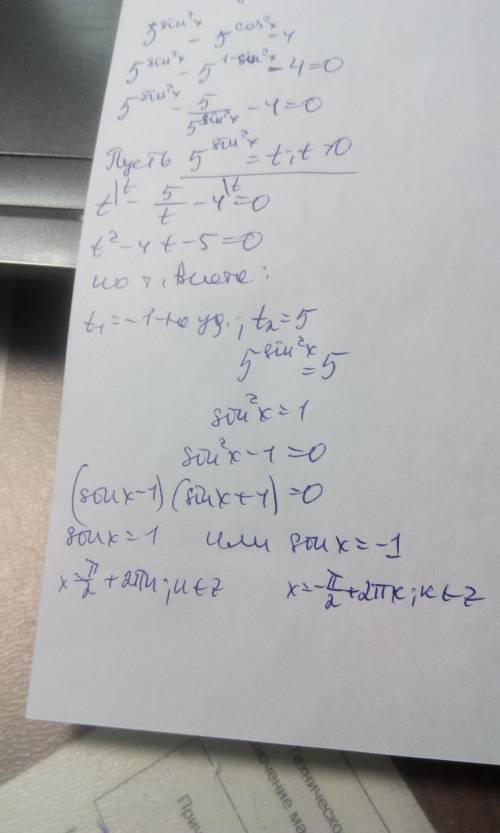 5^sin²x - 5^cos²x = 4
5^sin²x - 5^1-sin²x - 4 = 0
5^sin²x - 5/5^sin²x - 4 = 0
Пусть 5^sin²x = t; t > 0
t|^t - 5/t - 4|^t = 0
t² - 4t - 5 = 0
по т. Виета:
t₁ = -1 - не уд.; t₂ = 5
5^sin²x = 5
sin²x = 1
sin²x - 1 = 0
(sinx - 1)(sinx + 1) = 0
sinx = 1 или sinx = -1
x = π/2 + 2πк; к ∈ Z x = -π/2 + 2πк; к ∈ Z
Техническо
ключение ма
При